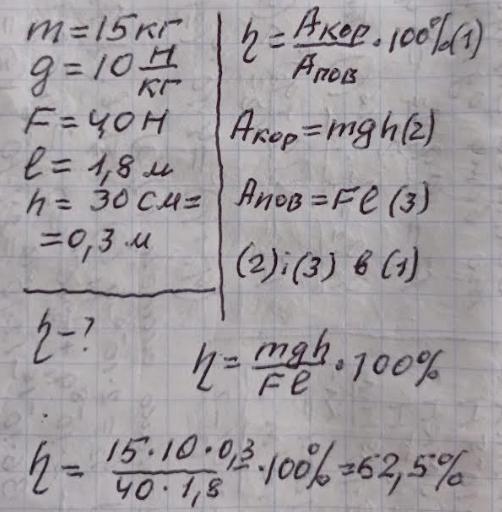 m=15кг
g=10 Н/кг
F=40Н
l=1,8м
h=30см=
=0,3м
η-?
η=Aкор/Aпов·100%(1)
Aкор=mgh(2)
Aпов=Fl(3)
(2)і(3) в (1)
η=mgh/Fl·100%
η=15·10·0,3/40·1,8·100%=62,5%